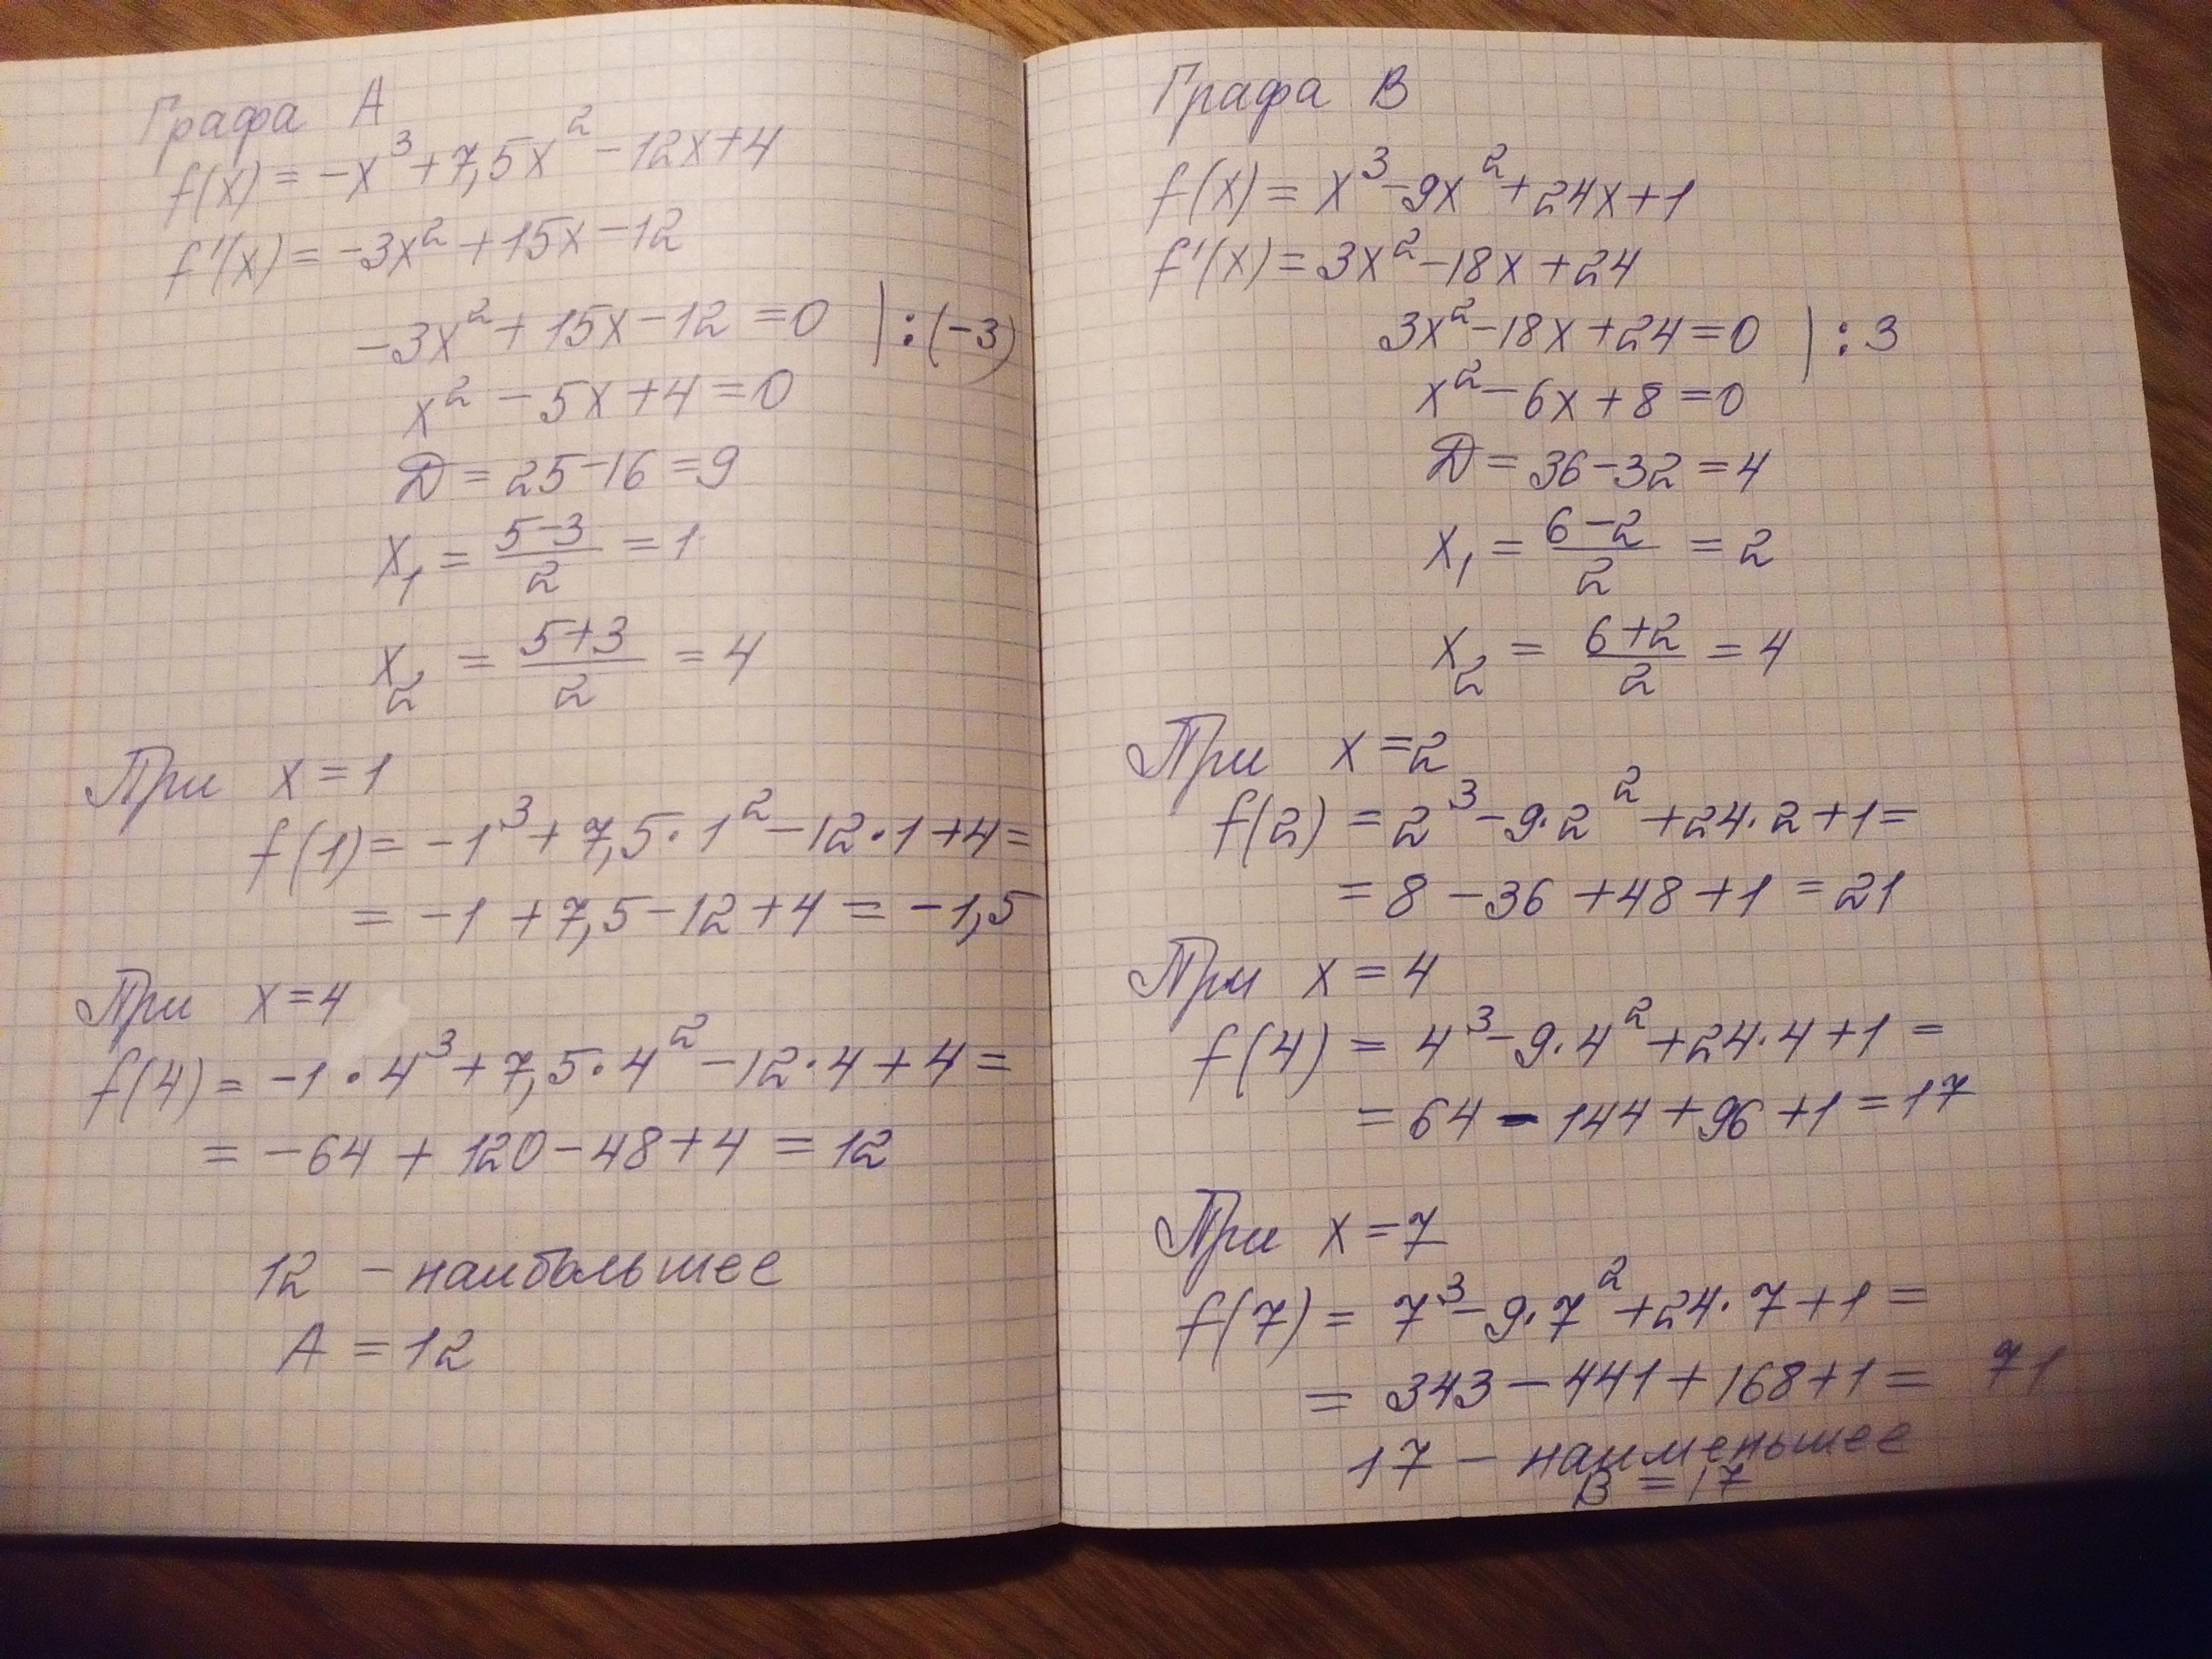 Графа А
f(x) = -x³ + 7,5x² - 12x + 4
f'(x) = -3x² + 15x - 12
-3x² + 15x - 12 = 0 | : (-3)
x² - 5x + 4 = 0
Д = 25 - 16 = 9
x₁ = (5-3)/2 = 1
x₂ = (5+3)/2 = 4
При x = 1
f(1) = -1³ + 7,5·1² - 12·1 + 4 =
= -1 + 7,5 - 12 + 4 = -1,5
При x = 4
f(4) = -1·4³ + 7,5·4² - 12·4 + 4 =
= -64 + 120 - 48 + 4 = 12
12 - наибольшее
А = 12
Графа В
f(x) = x³ - 9x² + 24x + 1
f'(x) = 3x² - 18x + 24
3x² - 18x + 24 = 0 | : 3
x² - 6x + 8 = 0
Д = 36 - 32 = 4
x₁ = (6-2)/2 = 2
x₂ = (6+2)/2 = 4
При x = 2
f(2) = 2³ - 9·2² + 24·2 + 1 =
= 8 - 36 + 48 + 1 = 21
При x = 4
f(4) = 4³ - 9·4² + 24·4 + 1 =
= 64 - 144 + 96 + 1 = 17
При x = 7
f(7) = 7³ - 9·7² + 24·7 + 1 =
= 343 - 441 + 168 + 1 = 71
17 - наименьшее
В = 17